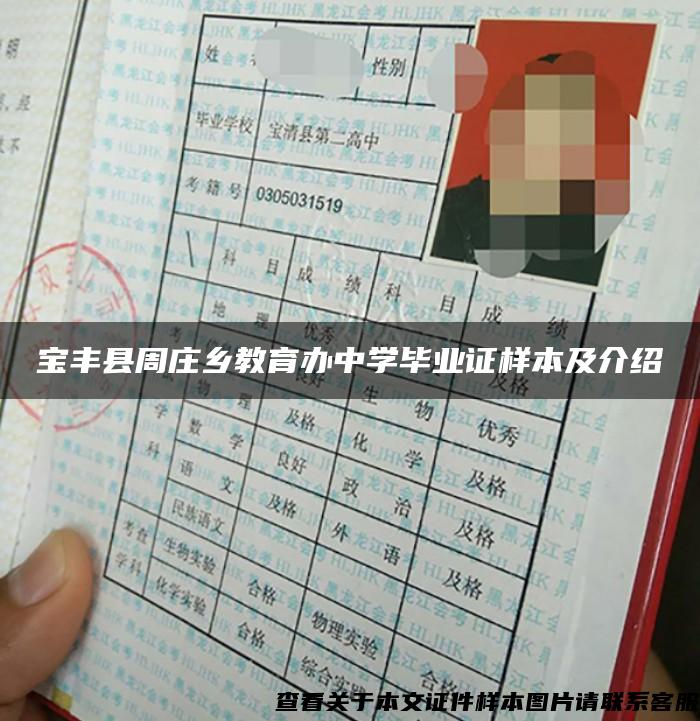 姓
性别
毕业学校 宝清县第二高中
考籍号 0305031519
科目 成绩 科目 成绩
地理 优秀
宝丰县周庄乡教育办中学毕业证样本及介绍
物理 及格 生物 优秀
学 数学 良好 化学 及格
科 语文 及格 政治 及格
民族语文 外语 及格
考查 生物实验 合格 物理实验 合格
学科 化学实验 合格 综合实
查看关于本文证件样本图片请联系客服